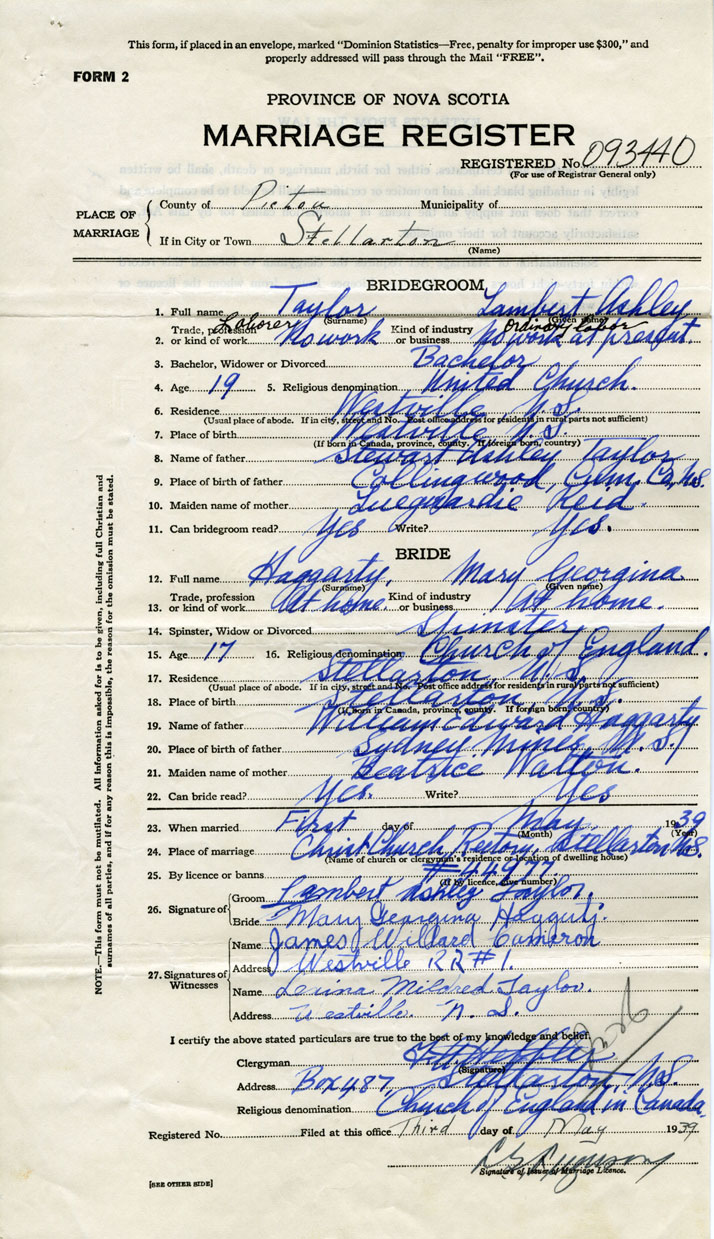 This form, if placed in an envelope, marked "Dominion Statistics—Free, penalty for improper use $300," and
properly addressed will pass through the Mail "FREE".
FORM 2
PROVINCE OF NOVA SCOTIA
MARRIAGE REGISTER
REGISTERED No. 093440
(For use of Registrar General only)
PLACE OF MARRIAGE
County of Pictou Municipality of
If in City or Town Stellarton
(Name)
BRIDEGROOM
1. Full name Taylor Lambert Ashley
(Surname) (Given name)
Laborer ordinary labor
2. Trade, profession or kind of work No work Kind of industry or business No work at present.
3. Bachelor, Widower or Divorced Bachelor
4. Age 19 5. Religious denomination United Church.
6. Residence Westville N.S.
(Usual place of abode. If in city, street and No. Post office address for residents in rural parts not sufficient)
7. Place of birth Westville N.S.
(If born in Canada, province, county. If foreign born, country)
8. Name of father Stewart Ashley Taylor
9. Place of birth of father Collingwood, Cum. Co, N.S.
10. Maiden name of mother Reid.
11. Can bridegroom read? Yes Write? Yes.
BRIDE
12. Full name Haggarty, Mary Georgina
(Surname) (Given name)
13. Trade, profession or kind of work At home. Kind of industry or business At home.
14. Spinster, Widow or Divorced Spinster
15. Age 17 16. Religious denomination Church of England.
17. Residence Stellarton, N.S.
(Usual place of abode. If in city, street and No. Post office address for residents in rural parts not sufficient)
18. Place of birth Stellarton, N.S.
(If born in Canada, province, county. If foreign born, country)
19. Name of father William Edward Haggarty
20. Place of birth of father Sydney Mines, N.S.
21. Maiden name of mother Beatrice Walton.
22. Can bride read? Yes. Write? Yes
23. When married First day of May 1939
(Month) (Year)
24. Place of marriage Christ Church Rectory, Stellarton N.S.
(Name of church or clergyman's residence or location of dwelling house)
25. By licence or banns
(If by licence, give number)
26. Signature of
Groom Lambert Ashley Taylor.
Bride Mary Georgina Haggarty.
27. Signatures of Witnesses
Name James Willard Cameron
Address Westville RR#1.
Name Mildred Taylor.
Address Westville. N.S.
I certify the above stated particulars are true to the best of my knowledge and belief.
Clergyman
(Signature)
Address Box 487, Stellarton N.S.
Religious denomination Church of England in Canada.
Registered No. Filed at this office Third day of May 1939.
Signature of Issuer of Marriage Licence.
[SEE OTHER SIDE]
NOTE.—This form must not be mutilated. All information asked for is to be given, including full Christian and
surnames of all parties, and if for any reason this is impossible, the reason for the omission must be stated.